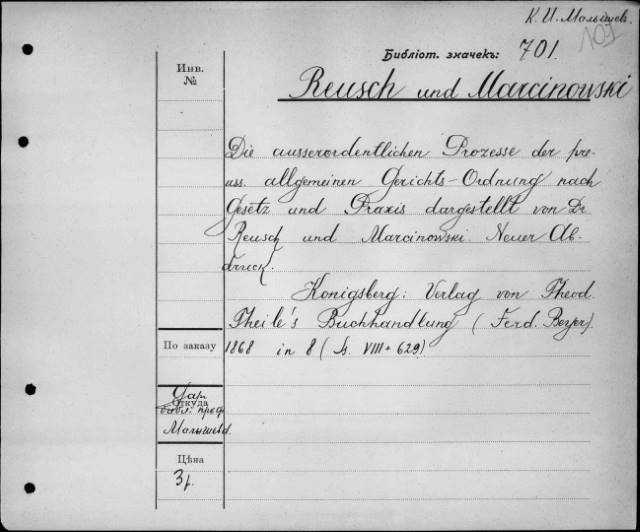 К. И. Малышев.
701
Библіот. значекъ: 701.
Инв.
№
Reusch und Marcinowski
Die ausserordentlichen Prozesse der preu-
uss. allgemeinen Gerichts-Ordnung nach
Gesetz und Praxis dargestellt von Dr
Reusch und Marcinowski. Neuer Ab-
druck.
Konigsberg: Verlag von Theod.
Theile's Buchhandlung (Ferd. Beyer).
По заказу
1868 in 8 (S. VIII + 629)
Дар
Откуда
библ. проф.
Малышева.
Цѣна
3р.